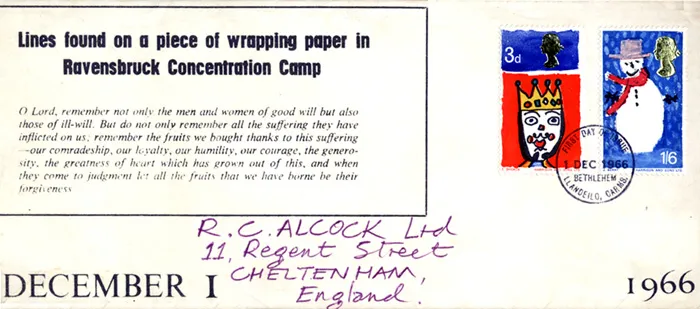 Lines found on a piece of wrapping paper in
Ravensbruck Concentration Camp
O Lord, remember not only the men and women of good will but also
those of ill-will. But do not only remember all the suffering they have
inflicted on us; remember the fruits we bought thanks to this suffering
—our comradeship, our loyalty, our humility, our courage, the genero-
sity, the greatness of heart which has grown out of this, and when
they come to judgment let all the fruits that we have borne be their
forgiveness
3d
1/6
FIRST DAY OF ISSUE
1 DEC 1966
BETHLEHEM
LLANDEILO, CARMS.
R.C. ALCOCK Ltd
11, Regent Street
CHELTENHAM,
England.
DECEMBER 1
1966